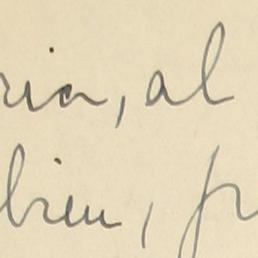 ria, al
bien, pr